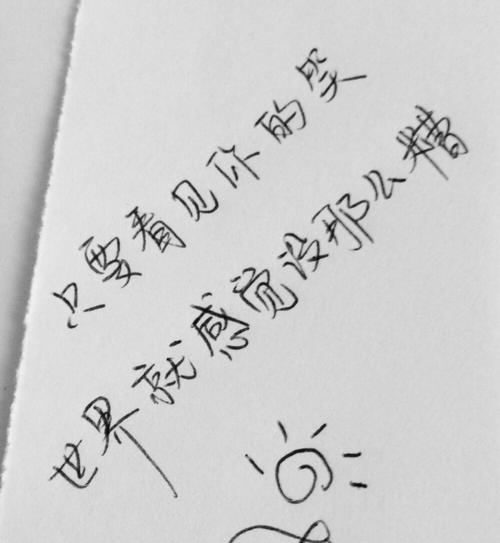 只要看见你的笑
世界就感觉没那么糟